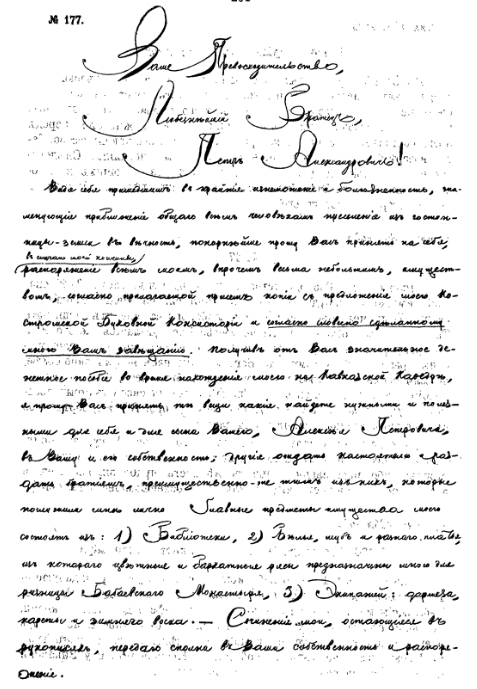 № 177.
Ваше Превосходительство,
Любезнѣйшій Братецъ,
Петръ Александровичъ!
Видя себя пришедшимъ въ крайнее изнеможеніе и болѣзненность, зна-
менующіе приближеніе общаго всѣмъ человѣкамъ преселенія изъ гостин-
ницы-земли въ вѣчность, покорнѣйше прошу Васъ принять на себя,
въ случаѣ моей кончины,
распоряженіе всѣмъ моимъ, впрочемъ весьма небольшимъ, имущест-
вомъ, согласно прилагаемой при семъ копіи съ предложенія моего Ко-
стромской Духовной Консисторіи и согласно словесно сдѣланному
мною Вамъ завѣщанію. Получивъ отъ Васъ значительное де-
нежное пособіе во время нахожденія моего на Кавказской Каѳедрѣ,
я прошу Васъ принять тѣ вещи какіе найдете нужными и полез-
ными для себя и для сына Вашего, Алексѣя Петровича,
въ Вашу и его собственность; другія отдать настоятелю и раз-
дать братіямъ, преимущественно-же тѣмъ изъ нихъ, которые
послужили мнѣ лично. Главные предметы имущества моего
состоятъ изъ: 1) Библіотеки, 2) Бѣлья, шубъ и разнаго платья,
изъ котораго цвѣтные и бархатные рясы предназначены мною для
ризницы Бабаевскаго Монастыря, 3) Экипажей: дормеза,
кареты и зимняго возка. — Сочиненія мои, остающіеся въ
рукописяхъ, передаю сполна въ Ваши собственность и распоря-
женіе.